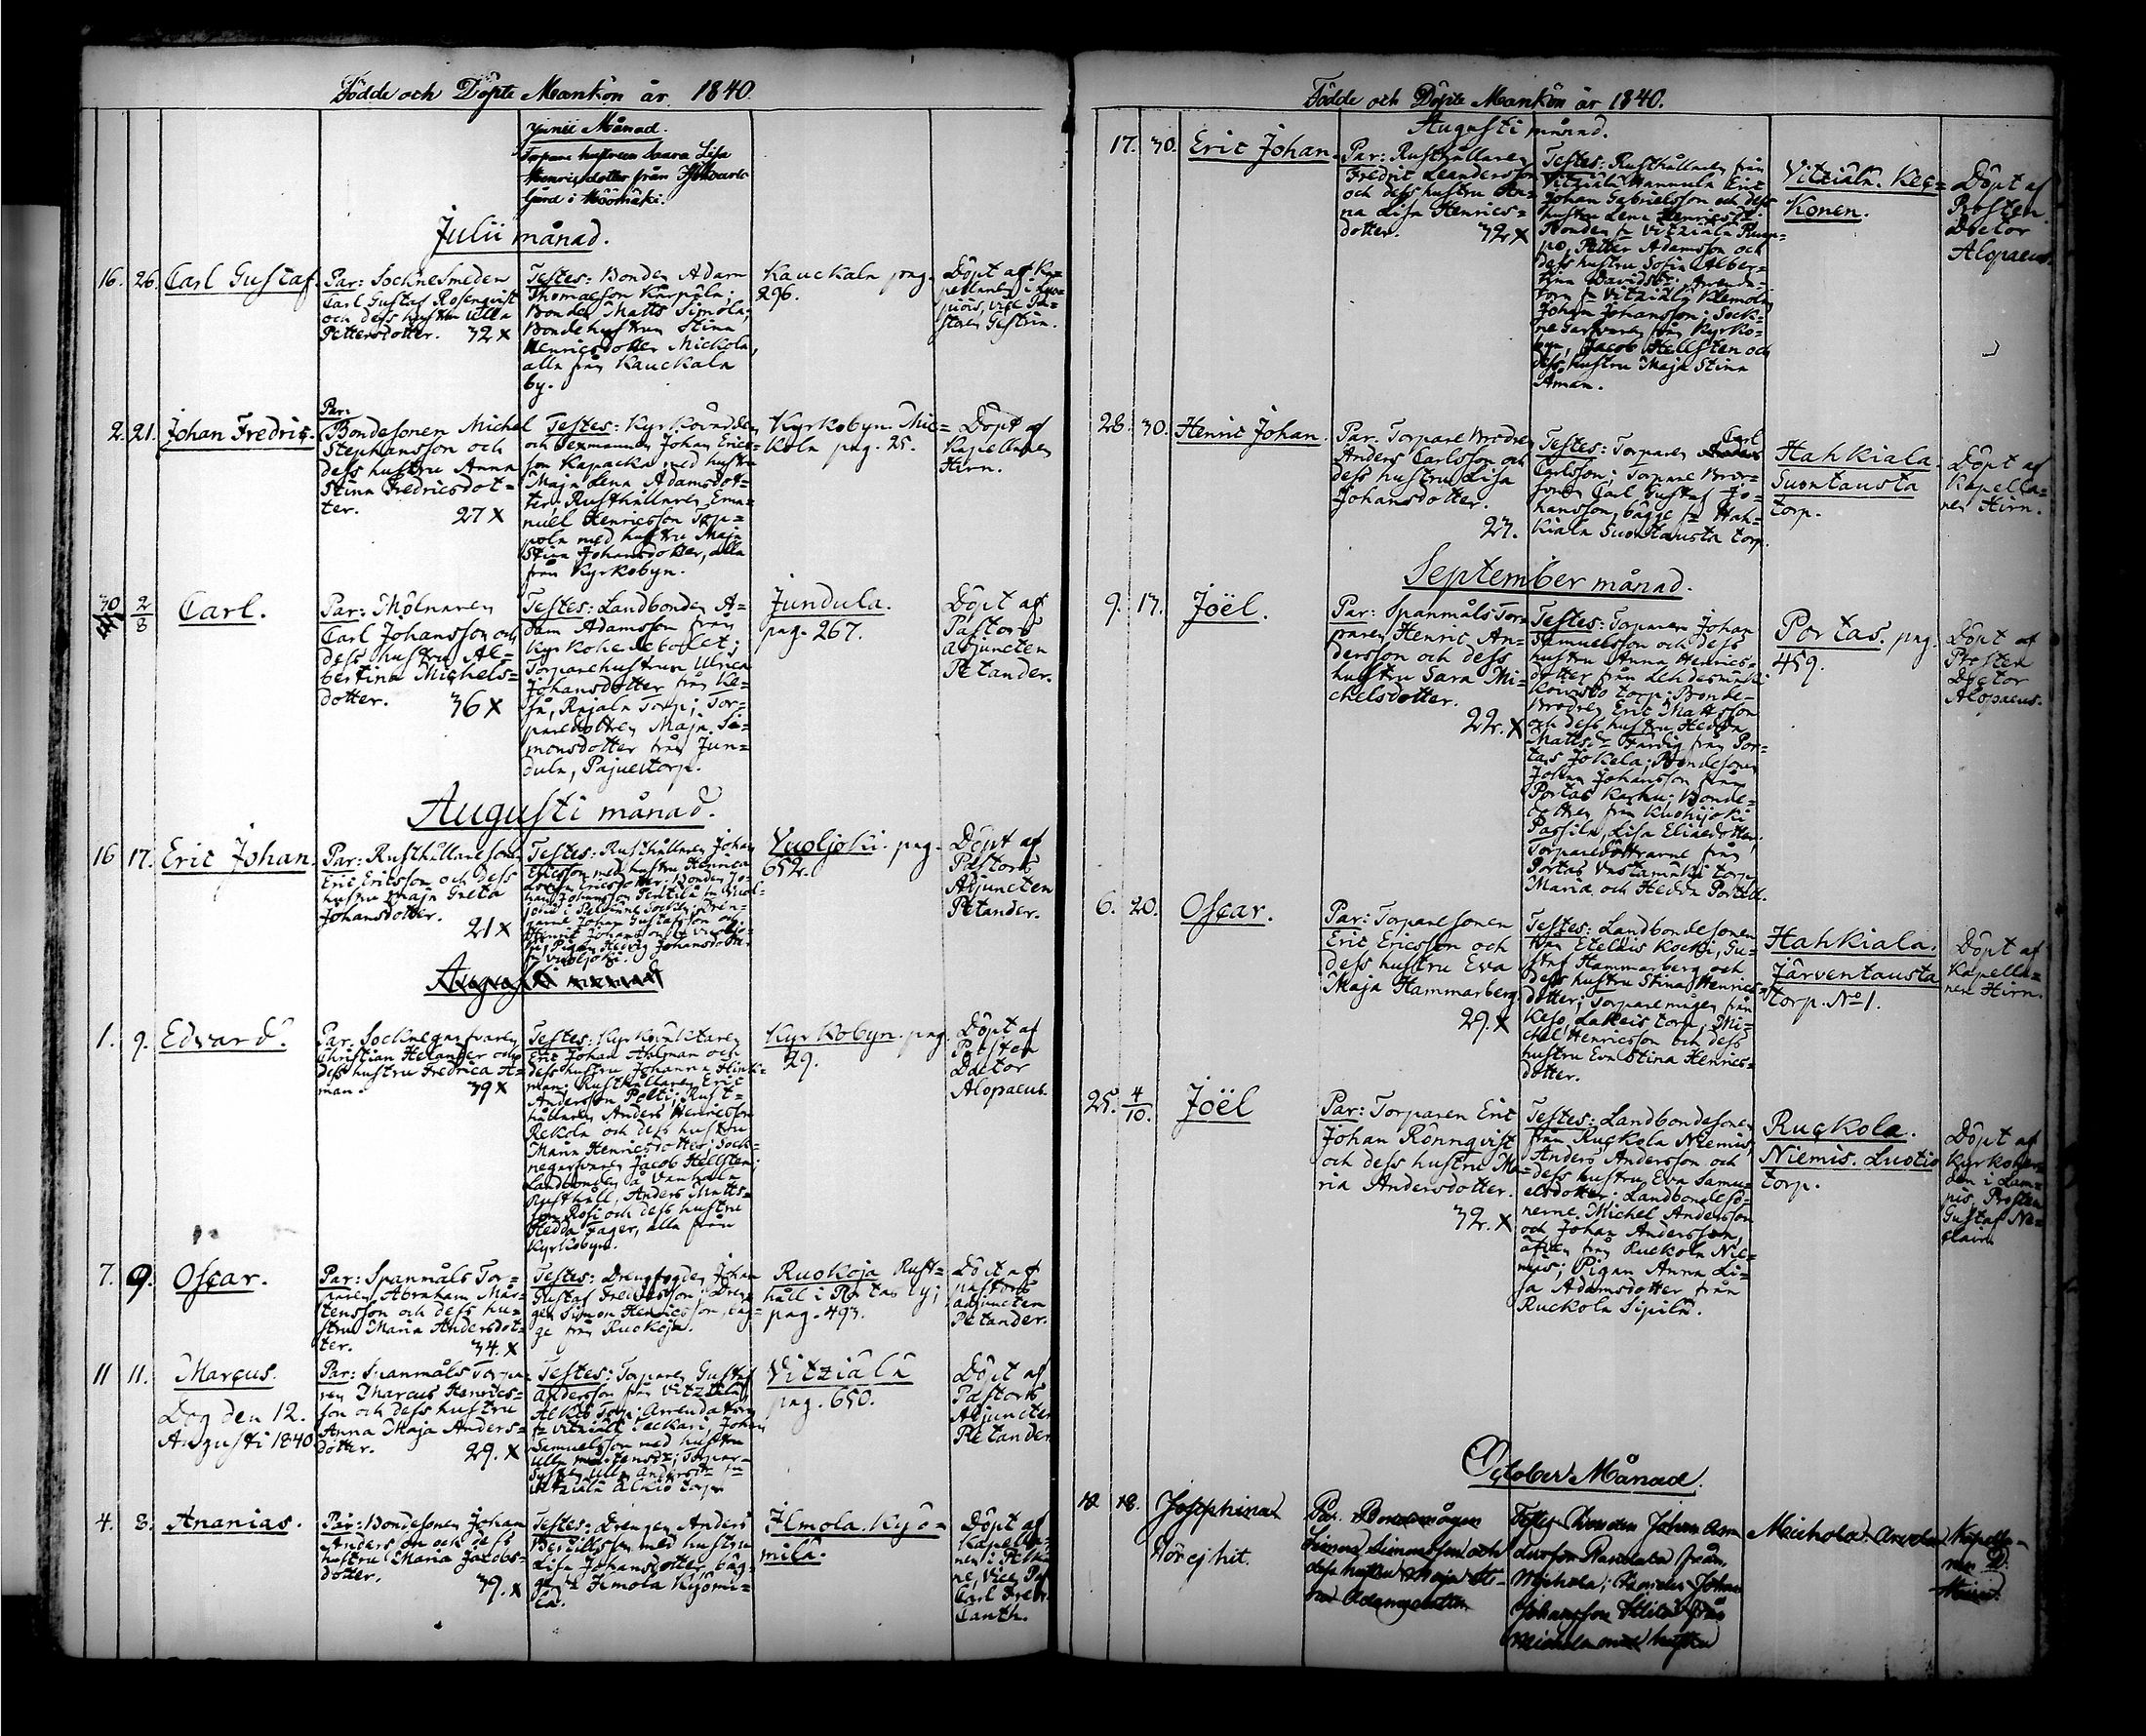 Födde och Döpte Mankön år 1840.
Junii Månad.
Torpare hustrun Saara Lisa
Henricsdotter från
Gård i
Julii månad.
16. 26. Carl Gustaf.
Par: Socknesmeden
Carl Gustaf Rosenqvist
och dess hustru Ulla
Pettersdotter. 32 X
Testes: Bonden Adam
Thomasson Kärpälä;
Bonden Matts Simola;
Bondehustrun Stina
Henricsdotter Mickola,
alla från Kauckala
by.
Kauckala pag.
296.
Döpt af Ka-
pellanen i
vice Pa-
storn Gestrin.
2. 21. Johan Fredric.
Par:
Bondesonen Michel
Stephansson och
dess hustru Anna
Stina Fredricsdot-
ter. 27 X
Testes: Kyrkovärden
och Sexmannen Johan Erics-
son Kapacka med hustru
Maja Lena Adamsdot-
ter; Rusthållaren Ema-
nuel Henricsson
med hustru Maja
Stina Johansdotter, alla
från Kyrkobyn.
Kyrkobyn. Mic-
kola pag. 25.
Döpt af
Kapellanen
Hirn.
30 2/8 Carl.
Par: Mölnaren
Carl Johansson och
dess hustru Al-
bertina Michels-
dotter. 36 X
Testes: Landbonden A-
dam Adamsson från
Kyrkoherdebolet;
Torparehustrun Ulrica
Johansdotter från Ke-
so, Rajala Torp; Tor-
paredottren Maja Si-
monsdotter från Jun-
dula, Pajuetorp.
Jundula.
pag. 267.
Döpt af
Pastors
adjuncten
Petander.
Augusti månad.
16 17. Eric Johan.
Par: Rusthållaresonen
Eric Ericsson och dess
hustru Maja Greta
Johansdotter.
21 X
Testes: Rusthållaren Johan
Ericsson med hustru Henrica
Ericsdotter; Bonden Jo-
han Johansson Penttilä
Johan Gustafsson och
Henric Johansson fr Vuoljo-
ki; Pigan Hedvig Johansdotter
fr Vuoljoki.
Vuoljoki. pag.
652.
Döpt af
Pastors
Adjuncten
Petander.
Augusti månad
1. 9. Edvard.
Par: Socknegarfvaren
Christian Helander och
dess hustru Fredrica Å-
man. 39 X
Testes:
Eric Johan Ahlman och
dess hustru Johanna
man; Rusthållaren Eric
Andersson Pelti; Rust-
hållaren Anders Henricsson
Rekola och dess hustru
Maria Henricsdotter; Sock-
negarfvaren Jacob Hellsten;
Landbonden å
Rusthåll, Anders Matts-
son Rosi och dess hustru
Hedda Fager, alla från
Kyrkobyn.
Kyrkobyn. pag.
29.
Döpt af
Prosten
Doctor
Alopaeus.
7. 9. Oscar.
Par: Spanmåls Tor-
paren Abraham Mår-
tensson och dess hu-
stru Maria Andersdot-
ter. 34. X
Testes: Drengfogden Johan
Gustaf Fredricsson; Dren-
gen Simon Henricsson, båg-
ge från Ruokoja.
Ruokoja Rust-
håll i Portas by;
pag. 493.
Döpt af
pastors
adjuncten
Petander.
11 11. Marcus.
Dog den 12.
Augusti 1840
Par: Spanmåls Torpa-
ren Marcus Henrics-
son och dess hustru
Anna Maja Anders-
dotter. 29. X
Testes: Torparen Gustaf
Andersson från Vitziälä,
Torp; Arrendatorn
fr Vitziälä Johan
Samuelsson med hustru
Ulla
Vitziälä
pag. 650.
Döpt af
Pastors
Adjuncten
Petander
4. 8. Ananias.
Par: Bondesonen Johan
Andersson och dess
hustru Maria Jacobs-
dotter.
39. X
Testes: Drengen Anders
med hustru
Lisa Johansdotter båg-
ge fr Ilmola Kyömi-
lä.
Ilmola. Kyö-
milä.
Döpt af
Kapella-
nen i
vice Pa
Carl Fredr.
Canth.
Födde och Döpte Mankön år 1840.
Augusti månad.
17. 30. Eric Johan.
Par: Rusthållaren
Fredric Leandersson
och dess hustru An-
na Lisa Henrics-
dotter. 32 X
Testes: Rusthållaren från
Vitziälä Mannula Eric
Johan Gabrielsson och dess
hustru Lena Henricsdr.
Bonden fr Vitziälä
Petter Adamsson och
dess hustru Sofia Alber-
tina Davidsdr; Arrenda-
torn fr Vitziälä Klemola
Johan Johansson; Sock-
ne Garfvaren från Kyrko-
byn, Jacob Hellsten och
dess hustru Maja Stina
Åman.
Vitziälä. Kec-
konen.
Döpt af
Prosten
Doctor
Alopaeus.
28. 30. Henric Johan.
Par: Torpare Brodren
Anders Carlsson och
dess hustru Lisa
Johansdotter.
23.
Testes: Torparen Carl
Carlsson; Torpare Bror-
sonen Carl Gustaf Jo-
hansson, bägge fr Hah-
kiala Suontausta torp.
Hahkiala.
Suontausta
torp.
Döpt af
Kapella-
nen Hirn.
September månad.
9. 13. Joël.
Par: Spanmåls Tor-
paren Henric An-
dersson och dess
hustru Sara Mi-
chelsdotter.
22. X
Testes: Torparen Johan
Samuelsson och dess
hustru Anna Henrics-
dotter från
torp; Bonde-
Brodren Eric Mattsson
och dess hustru Hedda
Mattsdr från Por-
tas Jokela; Bondesonen
Johan Johansson från
Portas Karhu; Bonde-
dottren från Kuohijoki
Passila, Lisa Eliaedotter;
Torparedöttrarne från
Portas Vastamäki torp
Maria och Hedda
Portas. pag.
459.
Döpt af
Prosten
Doctor
Alopaeus.
6. 20. Oscar.
Par: Torparesonen
Eric Ericsson och
dess hustru Eva
Maja Hammarberg.
29. X
Testes: Landbondesonen
från Eteläis Kocki, Gu-
staf Hammarberg och
dess hustru Stina Henrics-
dotter; Torparemågen från
Keso, Lakeis torp, Mi-
chel Henricsson och dess
hustru Eva Stina Henrics-
dotter.
Hahkiala.
Järventausta
torp. No 1.
Döpt af
Kapella-
nen Hirn.
25. 4/10. Joël
Par: Torparen Eric
Johan Rönnqvist
och dess hustru Ma-
ria Andersdotter.
32. X
Testes: Landbondesonen
från Ruckola Niemis,
Anders Andersson och
dess hustru Eva Samu-
elsdotter; Landbondeso-
nerne Michel Andersson
och Johan Andersson,
äfven från Ruckola Nie-
mis; Pigan Anna Li-
sa Adamsdotter från
Ruckola Sipilä.
Ruckola.
Niemis. Luotio
torp.
Döpt af
Kyrkoher-
den i Lam-
pis, Prosten
Gustaf
October Månad.
12 18. Josephina
Hör ej hit.
Par. Bondemågen
Simon Simonsson och
dess hustru Maja Sti-
na Adamsdotter
Testes Bonden Johan
från
Mickola; Bonden Johan
Johansson från
Mickola med hustru
Mickola
Kapella-
nen